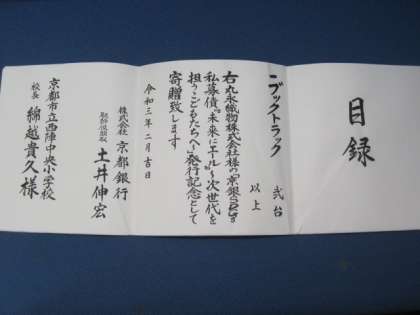 目録
一ブックトラック 弐台
以上
右丸永織物株式会社様の「京銀SDGs
私募債“未来にエール”～次世代を
担うこどもたちへ」発行記念として
寄贈致します
令和三年二月吉日
株式会社 京都銀行
取締役頭取 土井伸宏
京都市立西陣中央小学校
校長 綿越貴久様